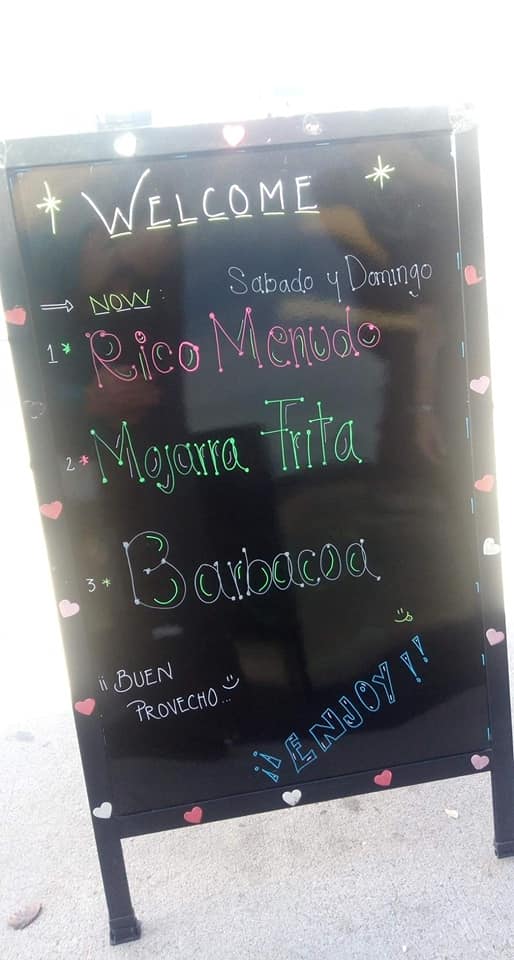 WELCOME
Sabado y Domingo
⇒ NOW:
1* Rico Menudo
2* Mojarra Frita
3* Barbacoa
¡¡BUEN
PROVECHO...
¡¡ENJOY!!